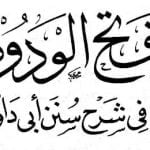 فتح الودو
في شَرْح سُنَن أبي دَاو